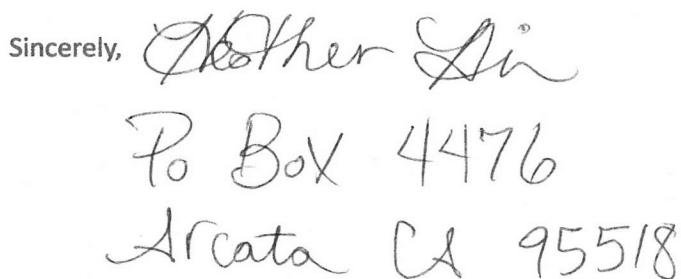 Sincerely, Heather Lin
Po Box 4476
Arcata CA 95518